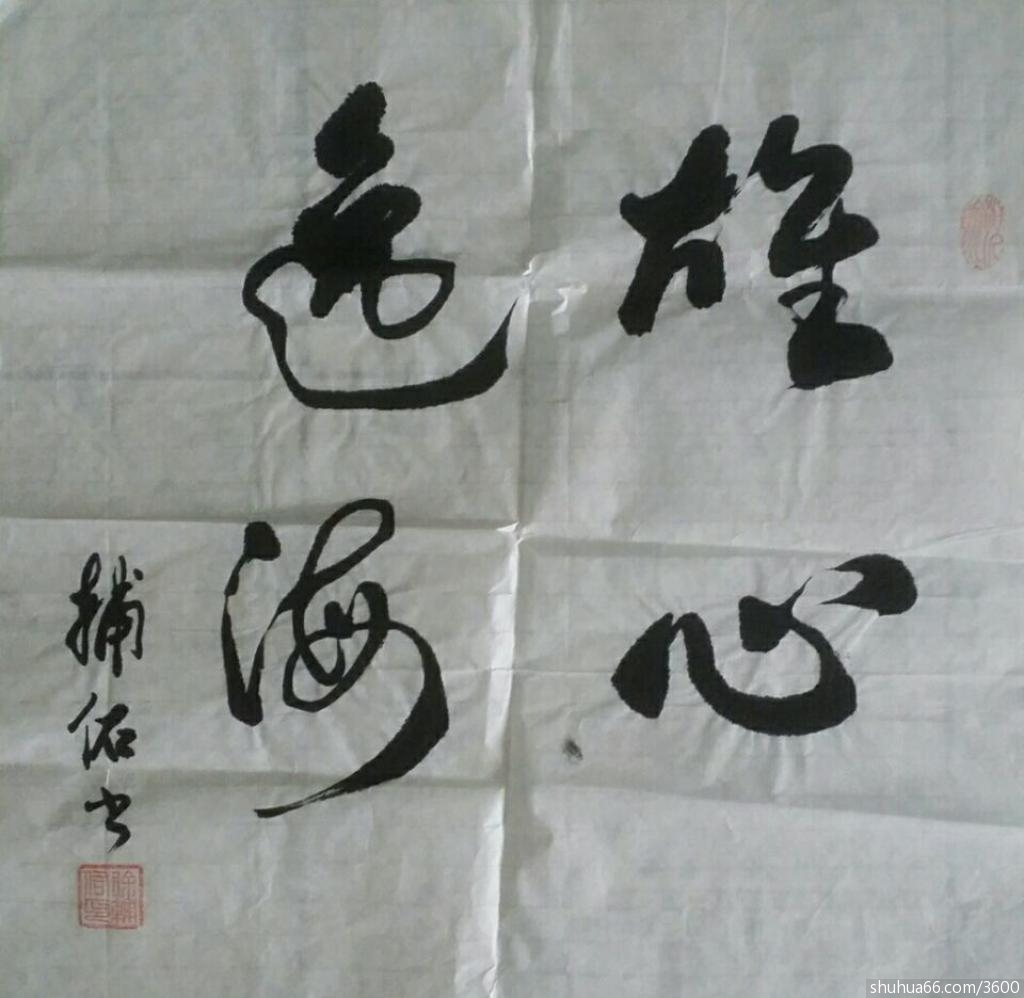 雄心
逸海
佑书
shuhua66.com/3600